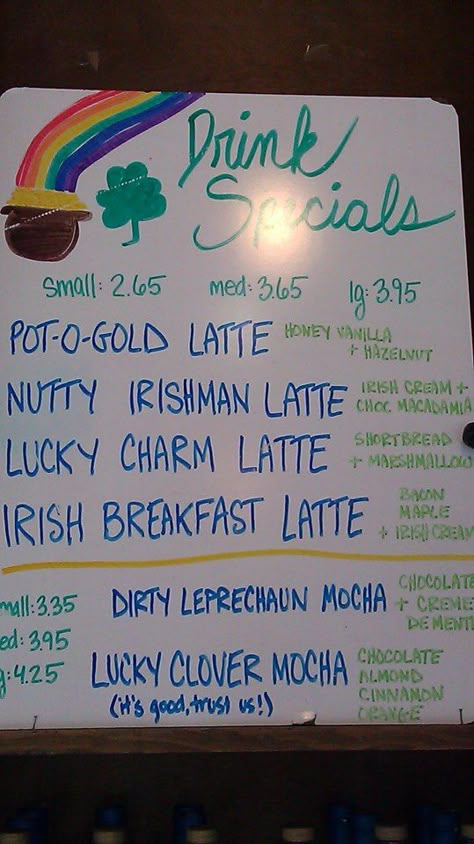 Drink
Specials
small: 2.65 med: 3.65 lg: 3.95
POT-O-GOLD LATTE HONEY VANILLA
+ HAZELNUT
NUTTY IRISHMAN LATTE IRISH CREAM +
CHOC. MACADAMIA
LUCKY CHARM LATTE SHORTBREAD
+ MARSHMALLOW
IRISH BREAKFAST LATTE BACON
MAPLE
+ IRISH CREAM
mall: 3.35 DIRTY LEPRECHAUN MOCHA CHOCOLATE
+ CREME
DE MENTE
ed: 3.95
g: 4.25 LUCKY CLOVER MOCHA CHOCOLATE
ALMOND
CINNAMON
ORANGE
(it's good, trust us!)